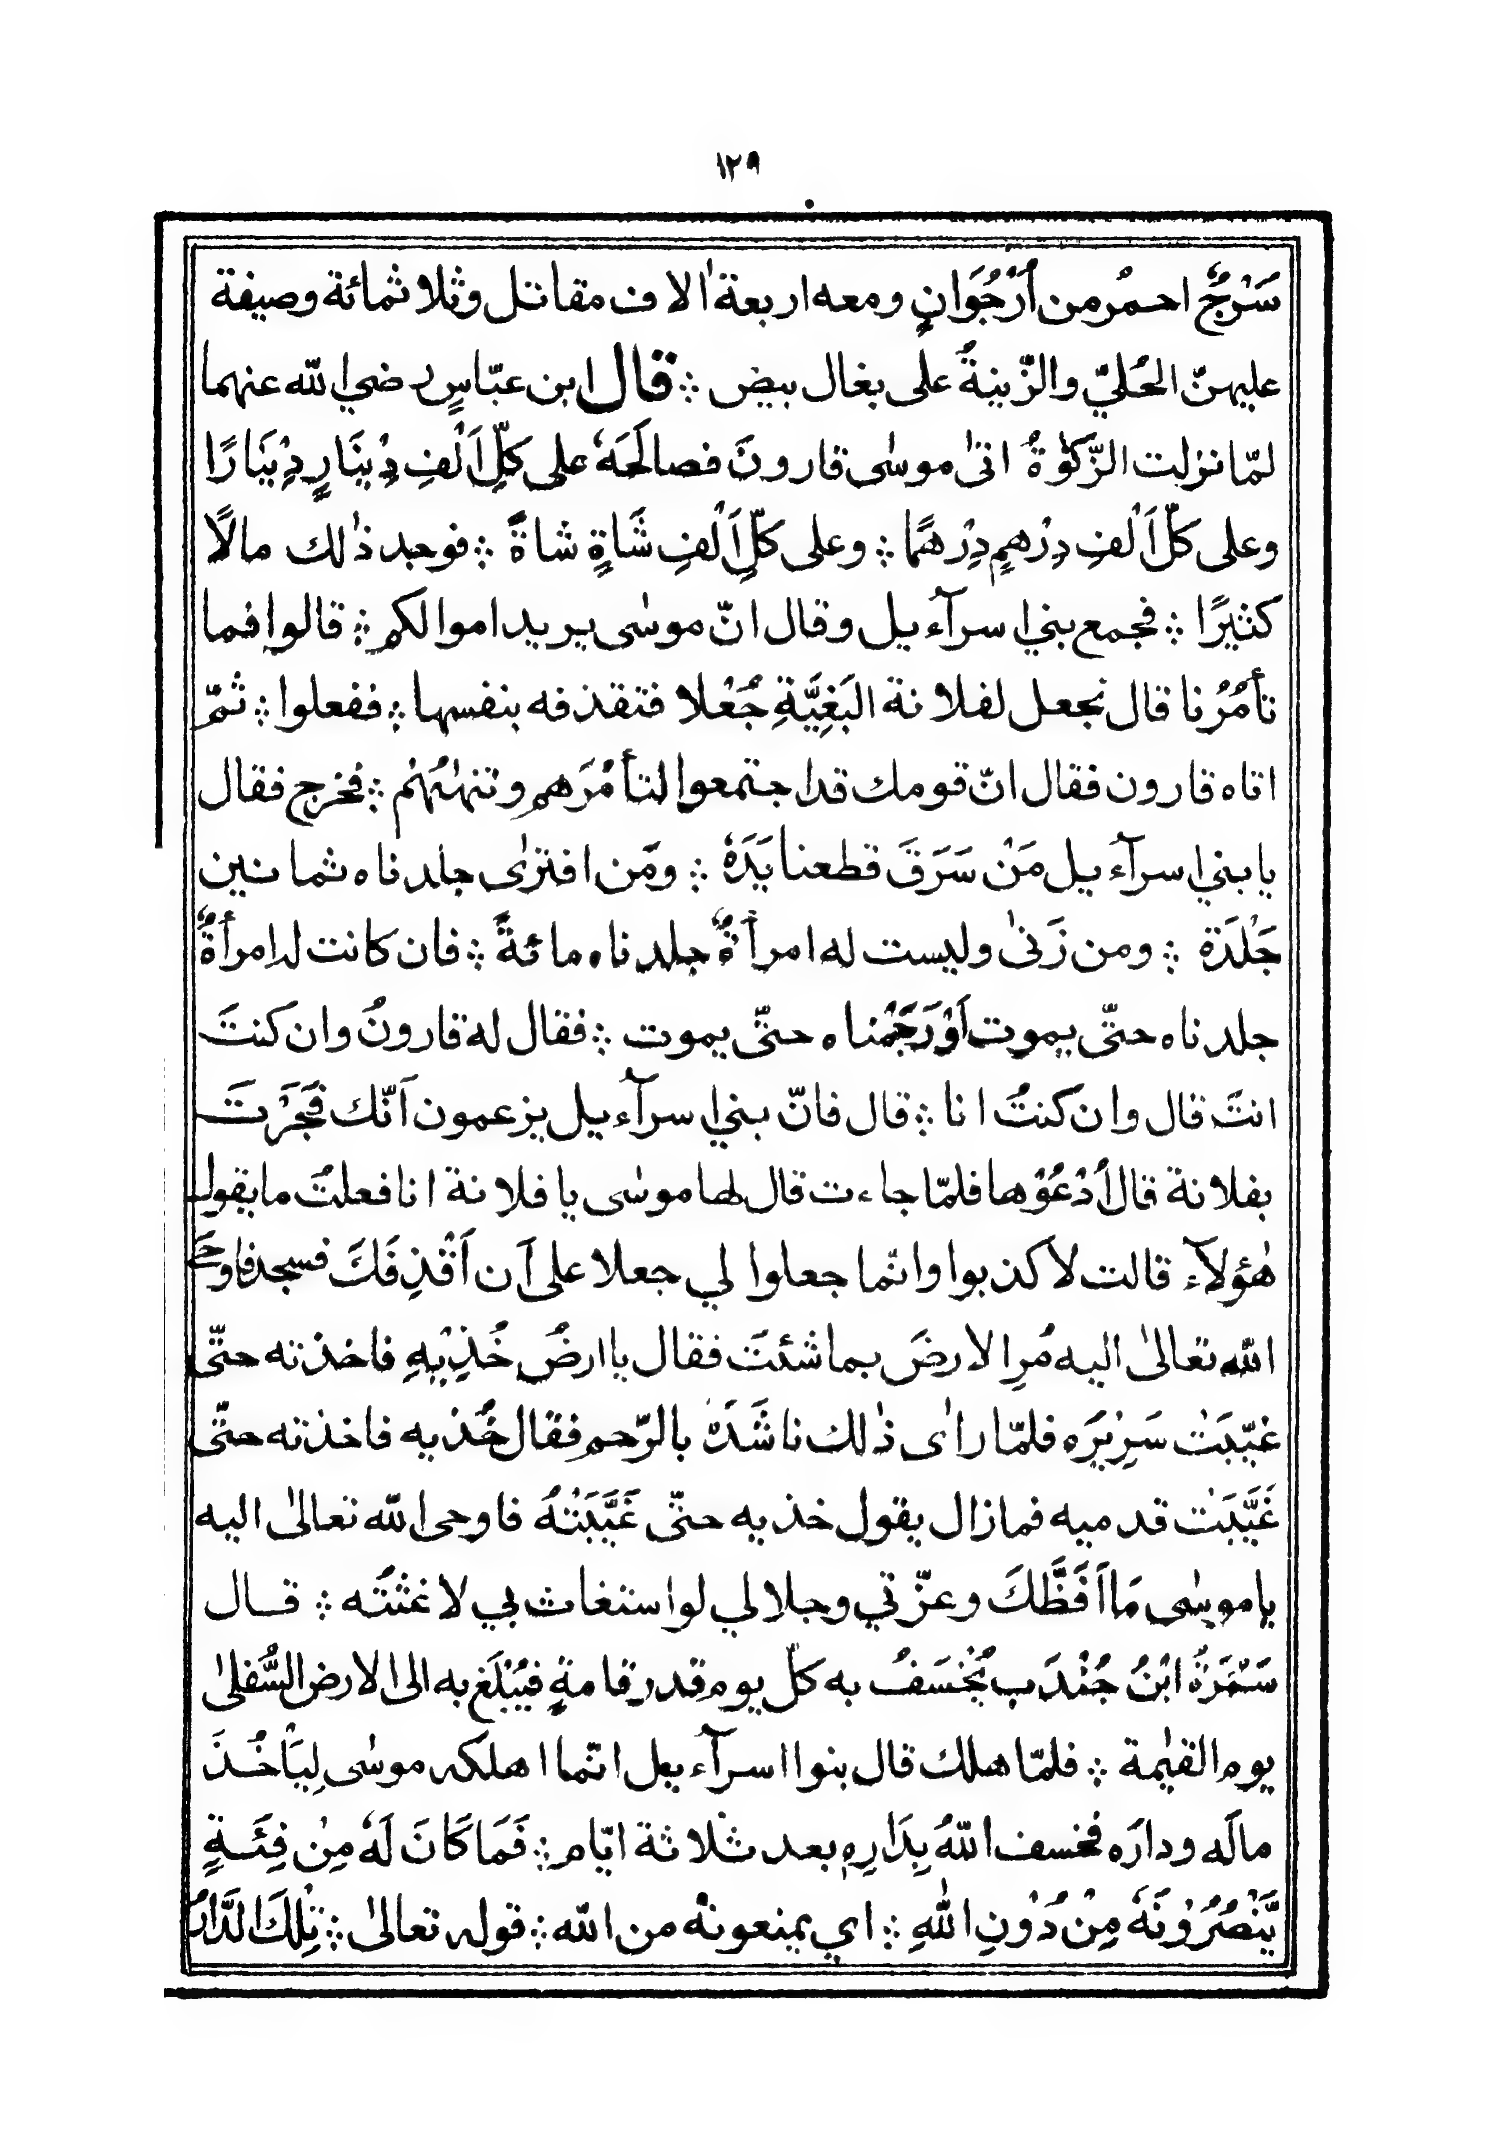 ١٢٩
سَرْجٌ احمرُ من أُرْجُوَانٍ ومعه اربعة اٰلاف مقاتل وثلاثمائة وصيفة
عليهنّ الحُليّ والزّينةُ على بغال بيض ؞ قال ابن عبّاسٍ رضي الله عنهما
لمّا نزلت الزّكوٰةُ اتىٰ موسٰى قارونَ فصالَحَهٗ على كلِّ اَلْفِ دِيْنَارٍ دِيْنَارًا
وعلى كلّ اَلْفِ دِرْهمٍ دِرْهمًا ؞ وعلى كلِّ اَلْفِ شَاةٍ شاةً ؞ فوجد ذٰلك مالًا
كثيرًا ؞ فجمع بني اسرآءيل وقال انّ موسٰى يريد اموالكم ؞ قالوا فما
تأمُرُنا قال نجعل لفلانة البَغِيَّةِ جُعْلا فتقذفه بنفسها ؞ ففعلوا ؞ ثمّ
اتاه قارون فقال انّ قومك قد اجتمعوا لتأمُرَهم وتنهٰهُمْ ؞ فخرج فقال
يا بني اسرآءيل مَنْ سَرَقَ قطعنا يَدَهٗ ؞ ومَن افترٰى جلدناه ثمانين
جَلْدَة ؞ ومن زَنىٰ وليست له امرأةٌ جلدناه مائةً ؞ فان كانت له امرأةٌ
جلدناه حتّى يموت اَوْ رَجَمْناه حتّى يموت ؞ فقال له قارونُ وان كنتَ
انتَ قال وان كنتُ انا ؞ قال فانّ بني اسرآءيل يزعمون اَنّك فَجَرْتَ
بفلانة قال اُدْعُوْها فلمّا جاءت قال لها موسٰى يا فلانة انا فعلتُ ما يقول
هٰؤلآء قالت لا كذبوا وانّما جعلوا لي جعلا على اَن اَقْذِفَكَ فسجد فاوحَى
الله تعالىٰ اليه مُرِ الارضَ بما شئتَ فقال يا ارضُ خُذِيْهِ فاخذته حتّى
غيّبَتْ سَرِيْرَه فلمّا راٰى ذٰلك ناشَدَهٗ بالرّحم فقال خُذيه فاخذته حتّى
غَيَّبَتْ قدميه فما زال يقول خذيه حتّى غَيَّبَتْهُ فاوحى الله تعالىٰ اليه
يا موسٰى مَا اَفَظَّكَ وعزّتي وجلالي لو استغاث بي لاغثتُه ؞ قال
سَمُرَةُ ابْنُ جُنْدَبٍ يُخْسَفُ به كلّ يوم قدر قامةٍ فيَبْلَغ به الى الارض السُّفلىٰ
يوم القيٰمة ؞ فلمّا هلك قال بنوا اسرآءيل انّما اهلكه موسٰى لِيَأْخُذَ
مالَه ودارَه فخسف اللهُ بِدَارِهٖ بعد ثلاثة ايّام ؞ فَمَا كَانَ لَهٗ مِنْ فِئَةٍ
يَّنْصُرُوْنَهٗ مِنْ دُوْنِ اللّٰهِ ؞ اي يمنعونه من الله ؞ قوله تعالىٰ ؞ تِلْكَ الدَّارُ